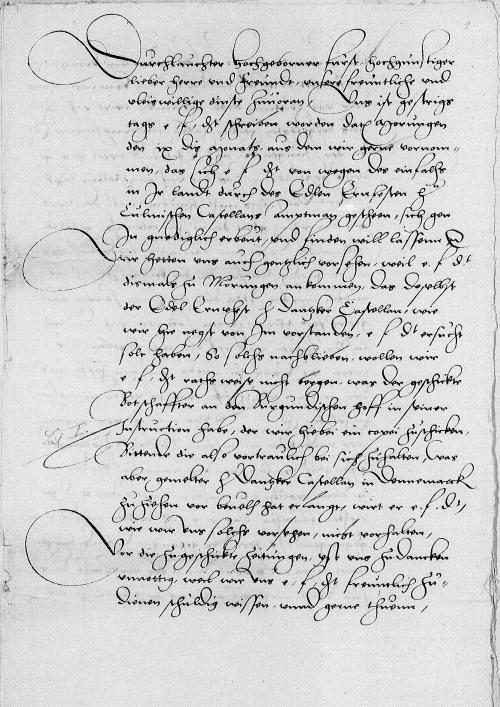 Durchlauchter hochgeborner furst, hochgunstiger
lieber herre und freundt, unsere freuntliche und
vleiswillige dinste zuuoran, Uns ist gestrigs
tags e f dt schreiben worden dat: Morungen
den ix dis monats, aus dem wir gerne vornom-
men, das sich e f dt von wegen des einfalhs
in Ir landt durch des Edlen Ernfesten h
Culmischen Castellans amptman geschen, sich gen
Im gnediglich erbeut, und finden will lassenn
wir hetten uns auch gentzlich vorsehen, weil e. f dt
dismals zu Morungen ankommen, das doselbst
der Edel Ernvhest h dantzker Castellan, wie
wir hie negst von Im vorstanden, e f dt ersucht
solt haben, So solchs nachblieben, wollen wir
e f dt raths weise nicht bergen, was der geschickte
Botschaffter an den Burgundischen hoff in seiner
Instruction habe, der wir hiebei ein copei zuschicken,
Bittende die also vortraulich bei sich zuhalten, Was
aber gemelter h dantzker Castellan in Dennemarck
zuzihen vor beuelh hat erlangt, wirt er e. f. dt,
wie wir uns solchs vorsehen, nicht vorhalten,
Vor die zugeschickte zeitungen, yst uns zudancken
unnottig, weil wir uns e. f. dt freuntlich zu-
dienen schuldig wissen, unnd gerne thuenn,